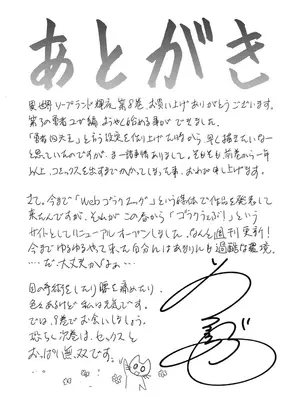 あとがき
異世界ソープランド輝夜、第8巻、お買い上げありがとうございます。
第3の勇者ユガ編、ようやく始める事ができました。
「勇者四天王」という設定を作り上げた時から早く描きたいなー
と思っていたのですが、ま一諸事情ありまして。そもそも前巻から一年
以上、コミックスを出すまでかかってしまった事、おわび申し上げます。
さて。今まで「Webゴラクエッグ」という媒体で作品を発表して
来たんですが、それがこの春から「ゴラクうぇぶ!」という
サイトとしてリニューアルオープンしました。なんと週刊更新!
今までゆるゆるやって来た自分にはあまりにも過酷な環境。
……だ、大丈夫かなぁ…
目の手術をしたり腰を痛めたり、
色々あるけど私は元気です。
では、9巻でお会いしましょう。
恐らく次巻は、セックスと
おっぱい無双です。